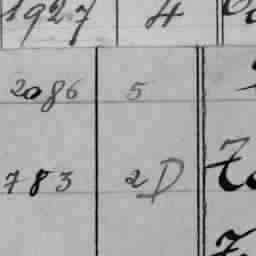 1927 4
2086 5
783 2D